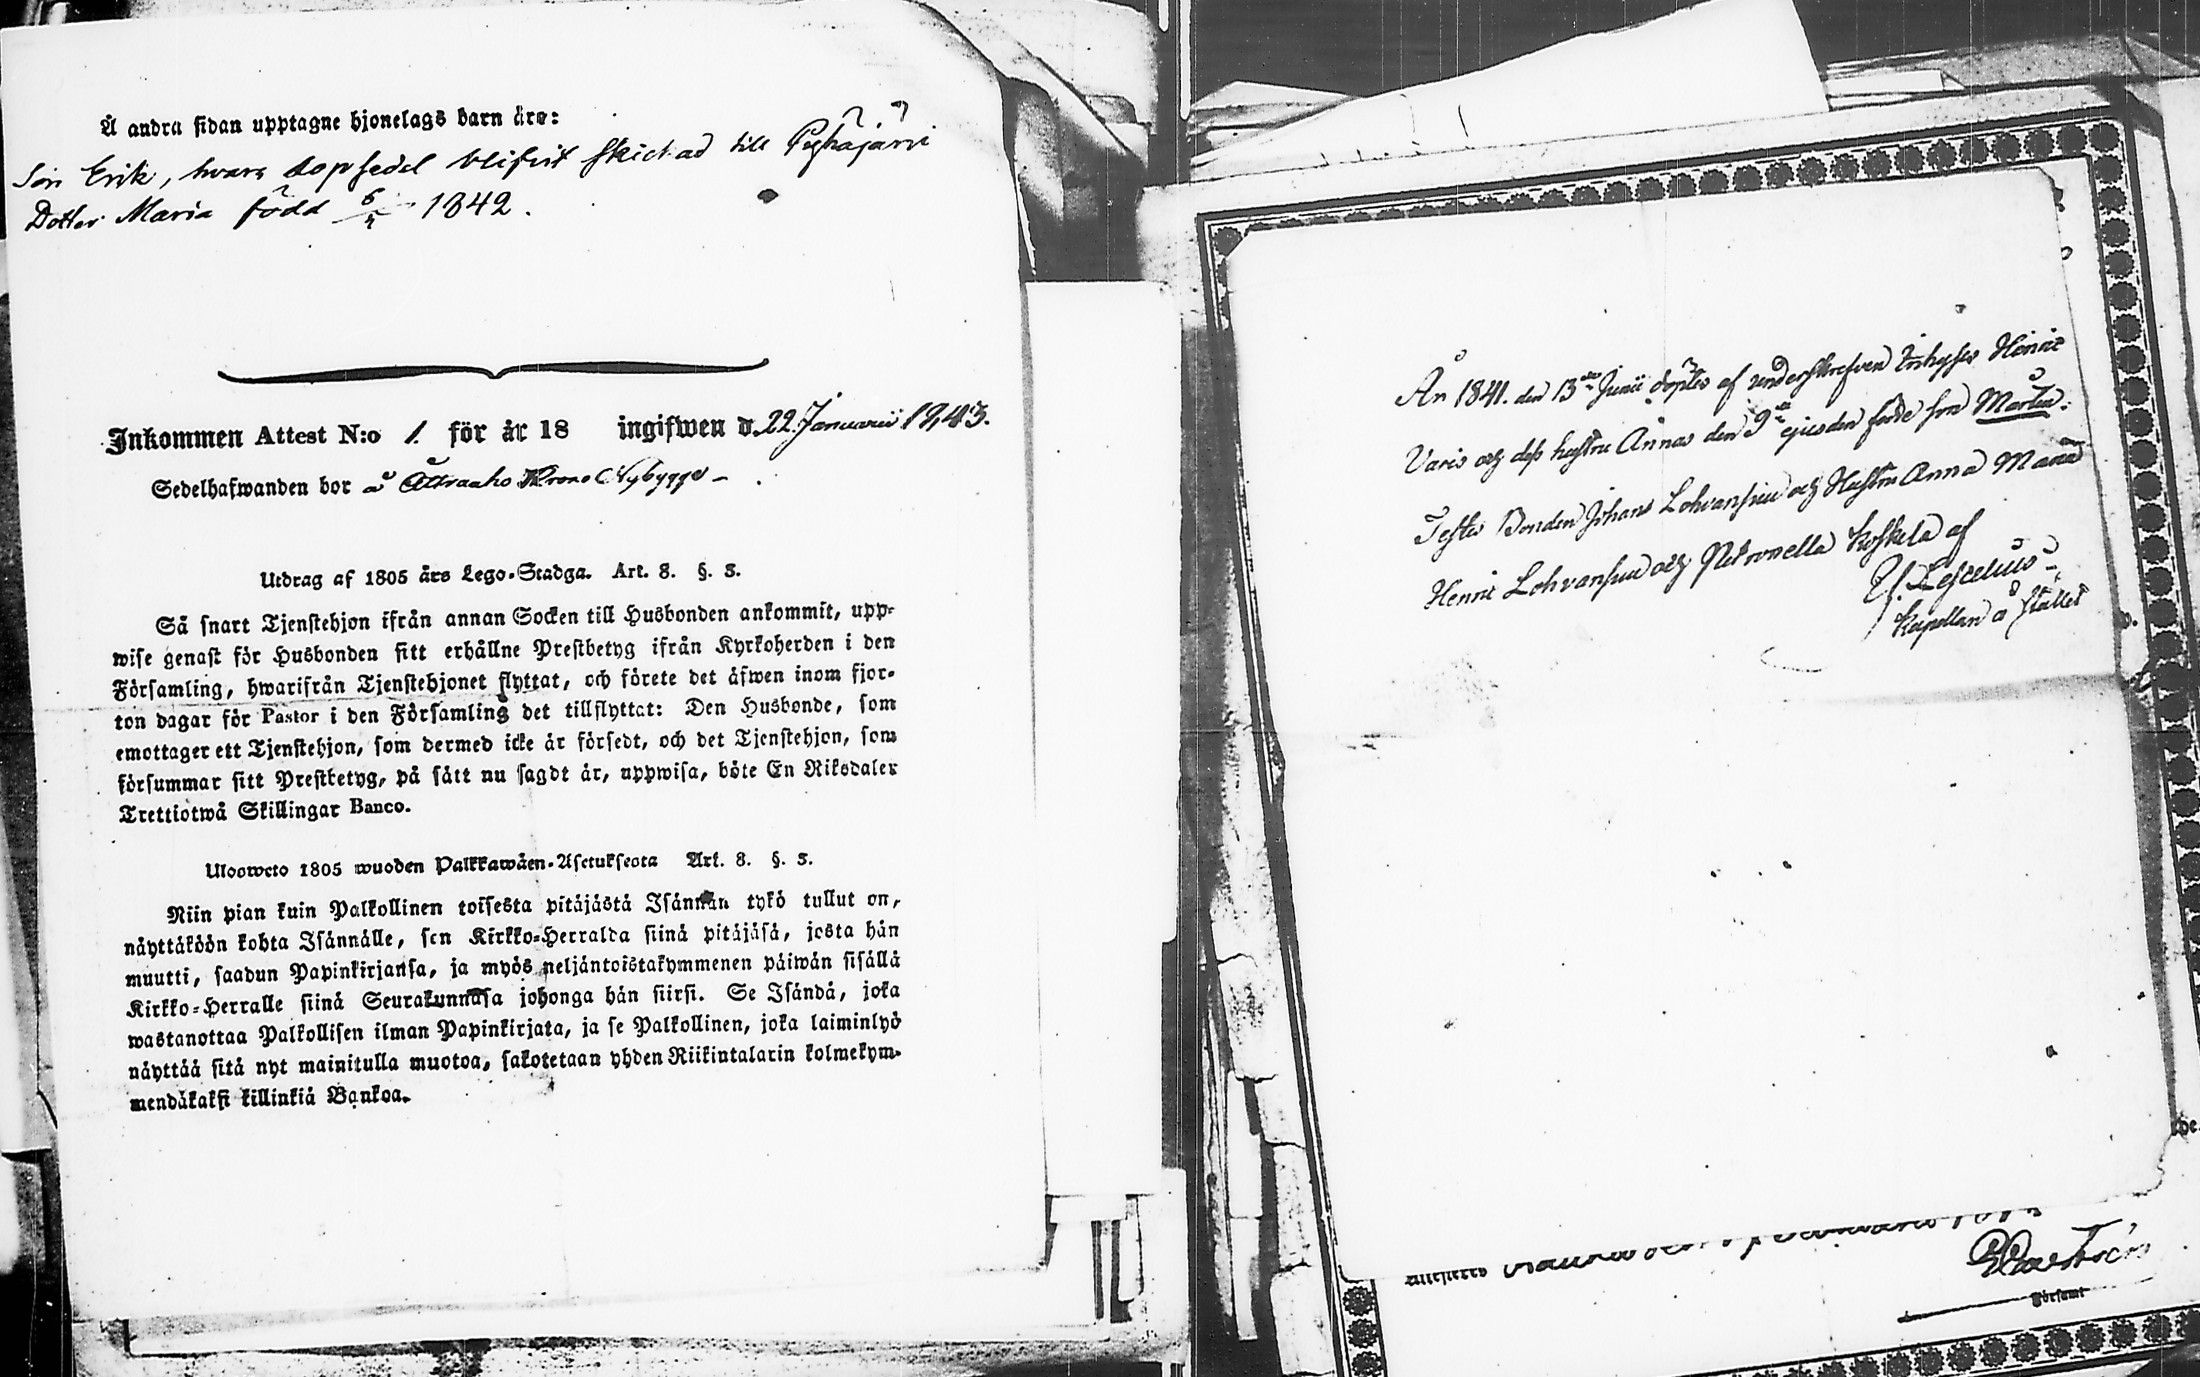 Å andra sidan upptagne hjonelags barn äro:
Son Erik, hvars dopsedel blifvit skickad till Pyhäjärvi
Dotter Maria född 6/5 1842.
Inkommen Attest N:o 1. för år 18 ingifwen d. 22 Januarii 1843.
Sedelhafwanden bor å Krono Nybygge
Utdrag af 1805 års Lego-Stadga. Art. 8. §. 3.
Så snart Tjenstehjon ifrån annan Socken till Husbonden ankommit, upp-
wise genast för Husbonden sitt erhållne Prestbetyg ifrån Kyrkoherden i den
Församling, hwarifrån Tjenstehjonet flyttat, och förete det äfwen inom fjor-
ton dagar för Pastor i den Församling det tillflyttat: Den Husbonde, som
emottager ett Tjenstehjon, som dermed icke är försedt, och det Tjenstehjon, som
försummar sitt Prestbetyg, på sätt nu sagdt är, uppwisa, böte En Riksdaler
Trettiotwå Skillingar Banco.
Uloosweto 1805 wuoden Palkkawäen-Asetuksesta Art. 8. §. 3.
Niin pian kuin Palkollinen toisesta pitäjästä Isännän tykö tullut on,
näyttäköön kohta Isännälle, sen Kirkko-Herralda siinä pitäjäsä, josta hän
muutti, saadun Papinkirjansa, ja myös neljäntoistakymmenen päiwän sisällä
Kirkko-Herralle siinä Seurakunnasa johonga hän siirsi. Se Isändä, joka
wastanottaa Palkollisen ilman Papinkirjata, ja se Palkollinen, joka laiminlyö
näyttää sitä nyt mainitulla muotoa, sakotetaan yhden Riikintalarin kolmekym-
mendäkaksi killinkiä Bankoa.
År 1841. den 13de Junii döptes af underskrefven Inhyses Henric
Varis och dess hustru Annas den 9de ejusdem födde son Mårten.
Testes Bonden Johans Lohvansuu och Hustru Anna Maria
Henric Lohvansuu och Petronella Koskela af
Kapellan å stället
Attesteres
Församl